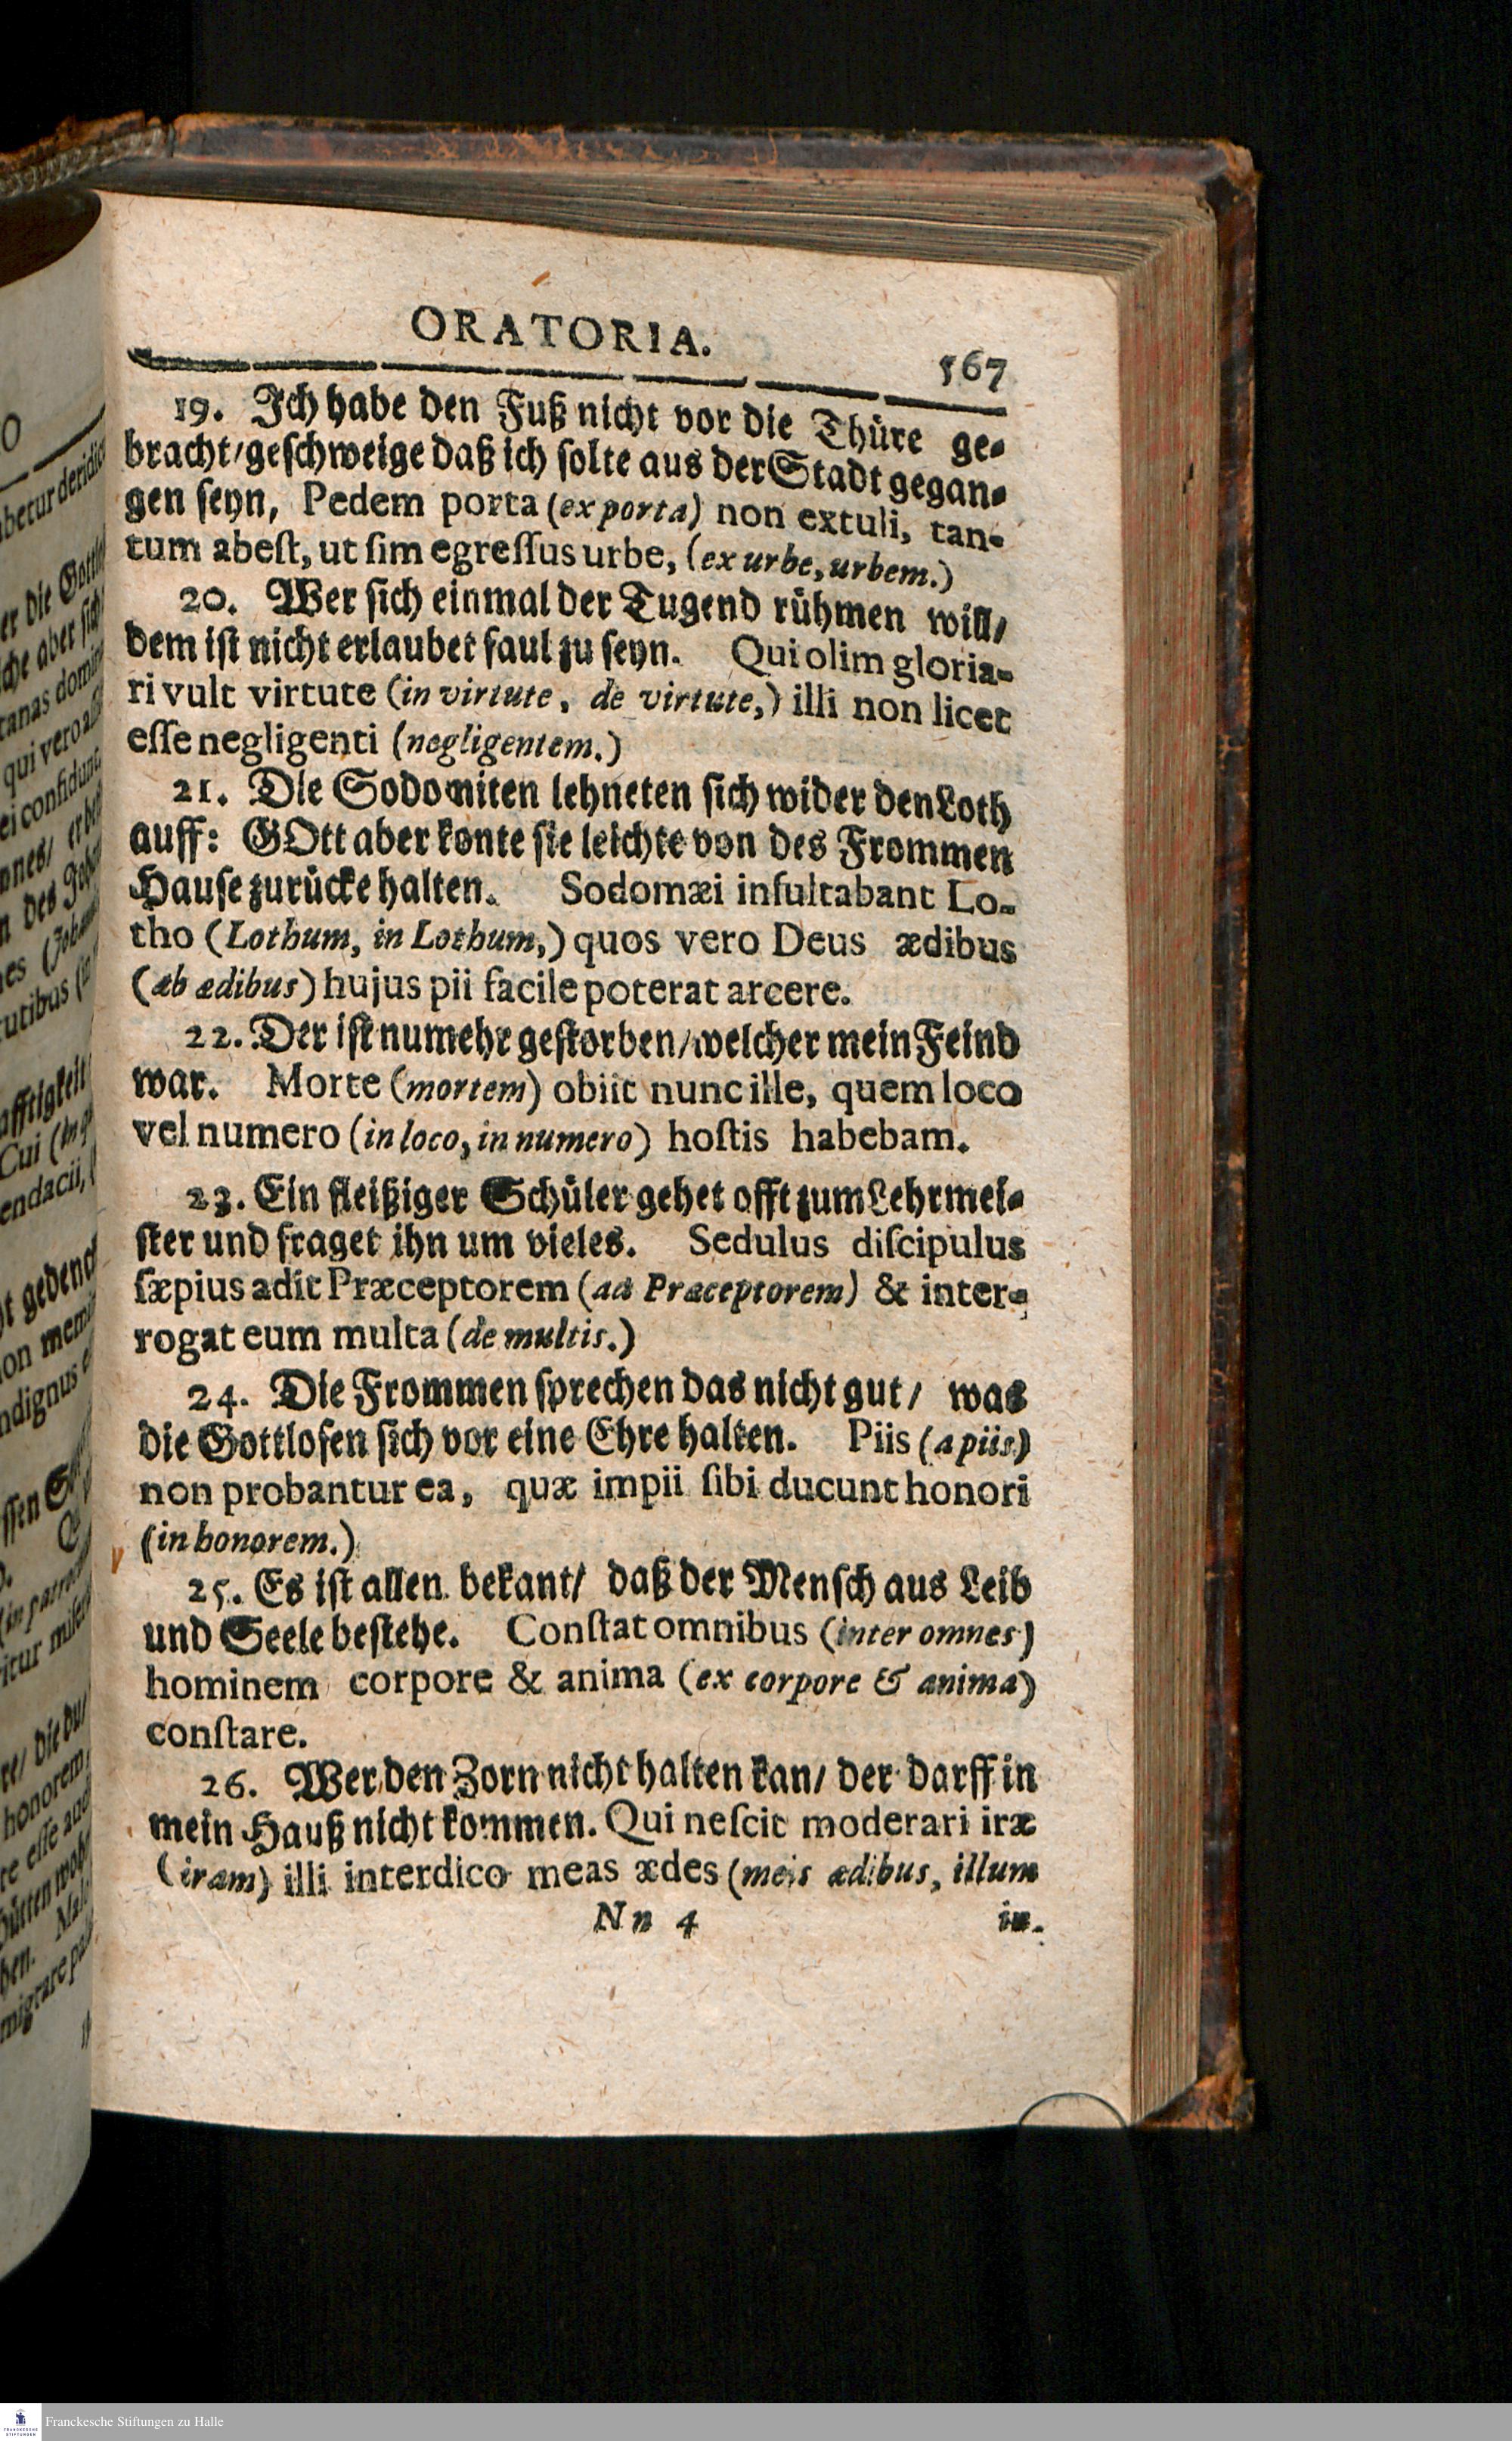 ORATORIA.
567
19. Ich habe den Fuß nicht vor die Thüre ge-
bracht/geschweige daß ich solte aus der Stadt gegan-
gen seyn, Pedem porta (ex porta) non extuli, tan-
tum abest, ut sim egressus urbe, (ex urbe, urbem.)
20. Wer sich einmal der Tugend rühmen will/
dem ist nicht erlaubet faul zu seyn. Qui olim gloria-
ri vult virtute (in virtute, de virtute,) illi non licet
esse negligenti (negligentem.)
21. Die Sodomiten lehneten sich wider den Loth
auff: GOtt aber konte sie leichte von des Frommen
Hause zurücke halten. Sodomæi insultabant Lo-
tho (Lothum, in Lothum,) quos vero Deus ædibus
(ab ædibus) hujus pii facile poterat arcere.
22. Der ist numehr gestorben/welcher mein Feind
war. Morte (mortem) obiit nunc ille, quem loco
vel numero (in loco, in numero) hostis habebam.
23. Ein fleißiger Schüler gehet offt zum Lehrmei-
ster und fraget ihn um vieles. Sedulus discipulus
sæpius adit Præceptorem (ad Præceptorem) & inter-
rogat eum multa (de multis.)
24. Die Frommen sprechen das nicht gut/ was
die Gottlosen sich vor eine Ehre halten. Piis (a piis)
non probantur ea, quæ impii sibi ducunt honori
(in honorem.)
25. Es ist allen bekant/ daß der Mensch aus Leib
und Seele bestehe. Constat omnibus (inter omnes)
hominem corpore & anima (ex corpore & anima)
constare.
26. Wer den Zorn nicht halten kan/ der darff in
mein Hauß nicht kommen. Qui nescit moderari iræ
(iram) illi interdico meas ædes (meis ædibus, illum
Nn 4
in-
Franckesche Stiftungen zu Halle